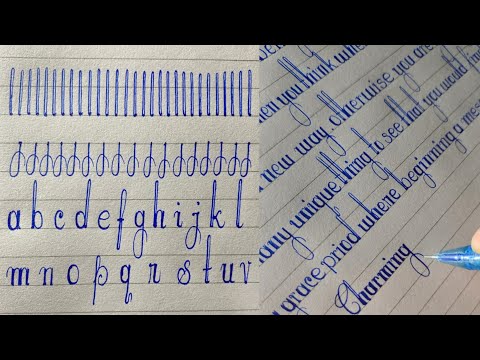 a b c d e f g h i j k l
m n o p q r s t u v
you think
new way, otherwise you are
any unique thing to see that you would
grace priod where beginning a
Charming